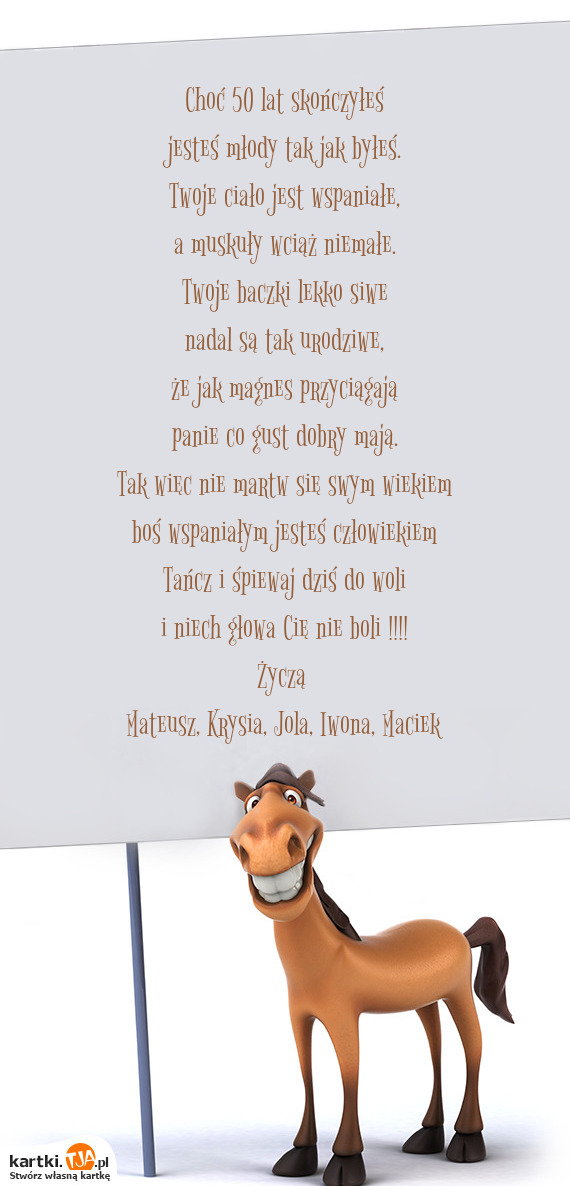 Choć 50 lat skończyłeś
jesteś młody tak jak byłeś.
Twoje ciało jest wspaniałe,
a muskuły wciąż niemałe.
Twoje baczki lekko siwe
nadal są tak urodziwe,
że jak magnes przyciągają
panie co gust dobry mają.
Tak więc nie martw się swym wiekiem
boś wspaniałym jesteś człowiekiem
Tańcz i śpiewaj dziś do woli
i niech głowa Cię nie boli !!!!
Życzą
Mateusz, Krysia, Jola, Iwona, Maciek
kartki.TJA.pl
Stwórz własną kartkę